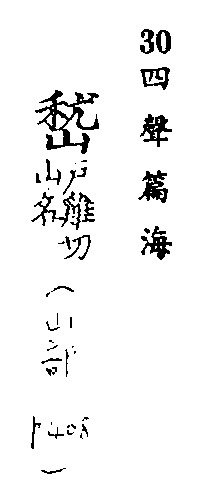 30 四聲篇海
嵇
戶雞切
山名
（山部
P408）